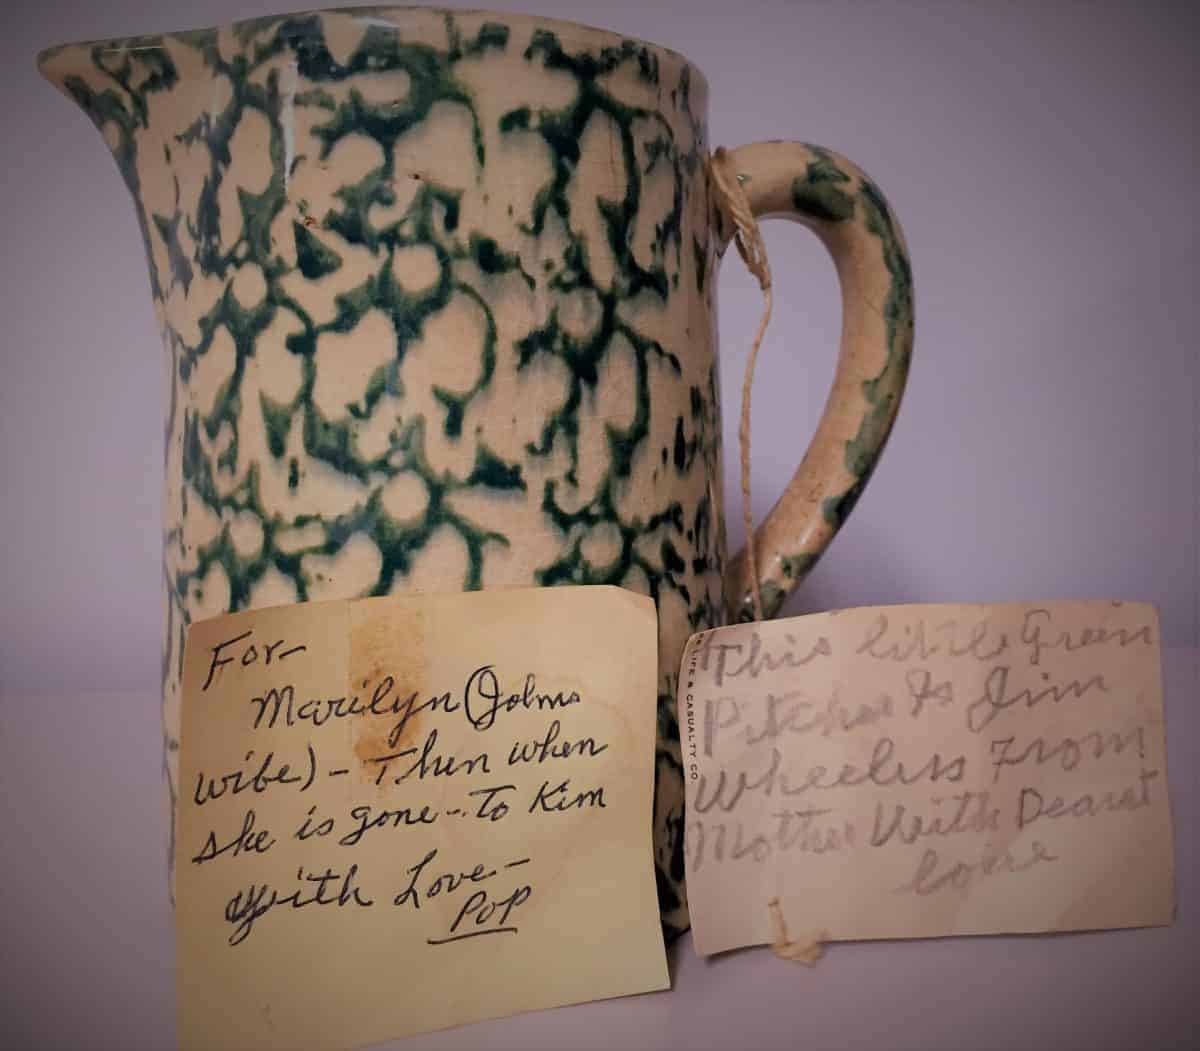 For-
Marilyn (Johns
wife) - Then when
she is gone - To Kim
With Love -
POP
LIFE & CASUALTY CO.
This little Green
Pitcher Is Jim
Wheeless From
Mother With Dearest
Love